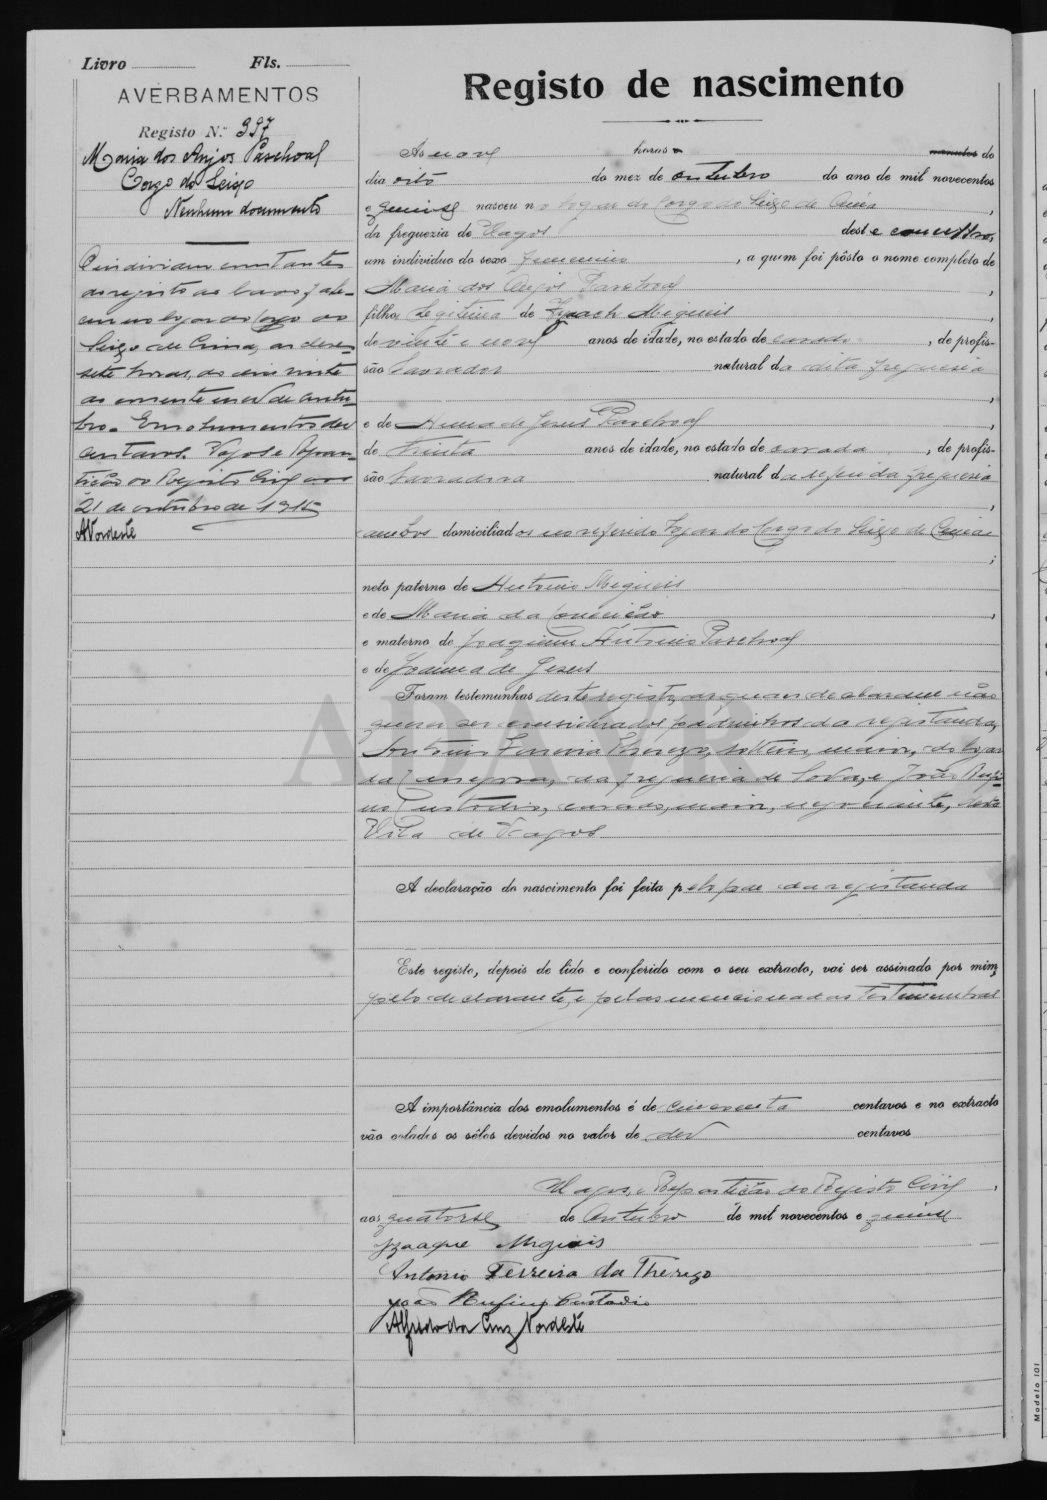 Livro Fls.
AVERBAMENTOS
Registo N.º 997
Maria dos Anjos Paschoal
Corgo do Seixo
Nenhum documento
O individuo constante
do registo ao lado, fale-
ceu no logar do Corgo do
Seixo de Cima, as deze-
sete horas, do dia vinte
do corrente mez de outu-
bro. Emolumentos dez
centavos. Vagos e Repar-
tição do Registo Civil aos
21 de outubro de 1915
ANordeste
Registo de nascimento
As nove horas minutos do
dia oito do mez de outubro do ano de mil novecentos
e quinse nasceu no logar do Corgo do Seixo de Cima,
da freguezia de Vagos deste concelho,
um individuo do sexo femenino, a quem foi pôsto o nome completo de
Maria dos Anjos Paschoal,
filha legitima de Izaach Migueis,
de vinte e nove anos de idade, no estado de casado, de profis-
são lavrador natural da dita freguesia,
e de Anna de Jesus Paschoal,
de trinta anos de idade, no estado de casada, de profis-
são lavradora natural da referida freguesia,
ambos domiciliados no referido logar do Corgo do Seixo de Cima;
neto paterno de Antonio Migueis
e de Maria da Conceição,
e materno de Joaquim Antonio Paschoal
e de Joanna de Jesus
Foram testemunhas deste registo, as quaes declararam não
querer ser considerados padrinhos da registanda,
Antonio Ferreira Therezo, solteiro, maior, do logar
da, da freguesia de Soza, e João Rufi-
no Custodio, casado, maior, negociante, desta
Vila de Vagos
A declaração do nascimento foi feita pelo pae da registanda
Este registo, depois de lido e conferido com o seu extracto, vai ser assinado por mim,
pelo declarante, e pelas mencionadas testemunhas
A importância dos emolumentos é de cincoenta centavos e no extracto
vão colados os sêlos devidos no valor de dez centavos
Vagos, e Repartição do Registo Civil,
aos quatorse de Outubro de mil novecentos e quinse
Izaaque Migueis
Antonio Ferreira da Therezo
João Rufino Custodio
Alfredo da Cruz Nordeste
ADAVR
Modelo 101